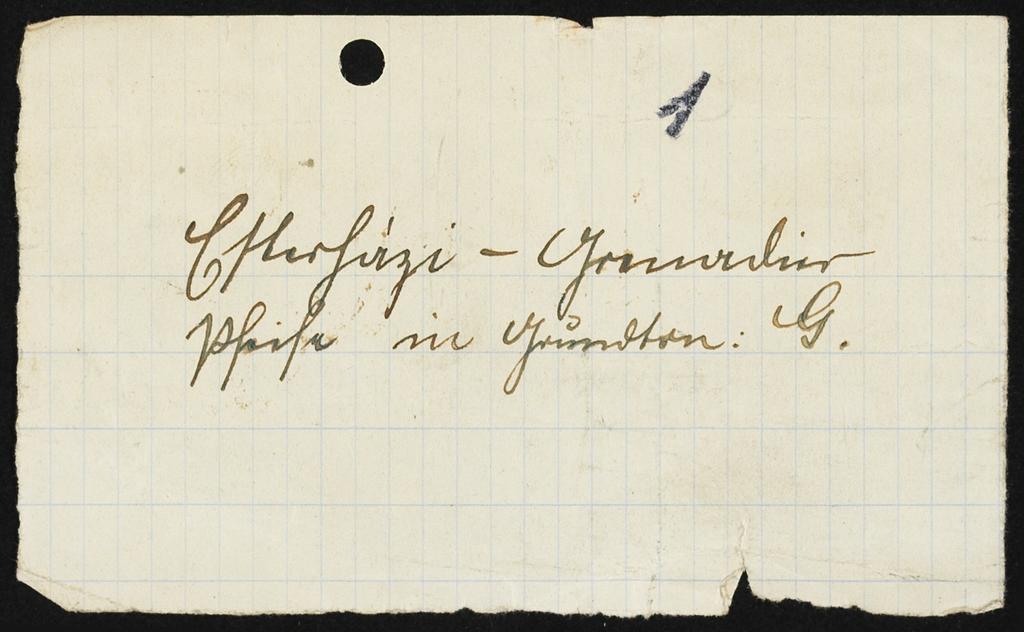 1
Esterházi - Grenadier
Pfeife in Grundton: G.